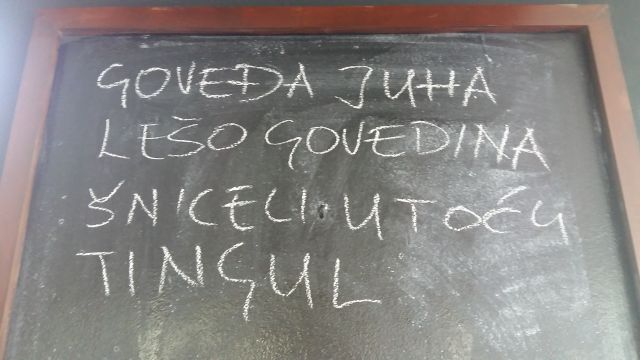 GOVEĐA JUHA
LEŠO GOVEDINA
ŠNICELI U TOĆU
TINGUL